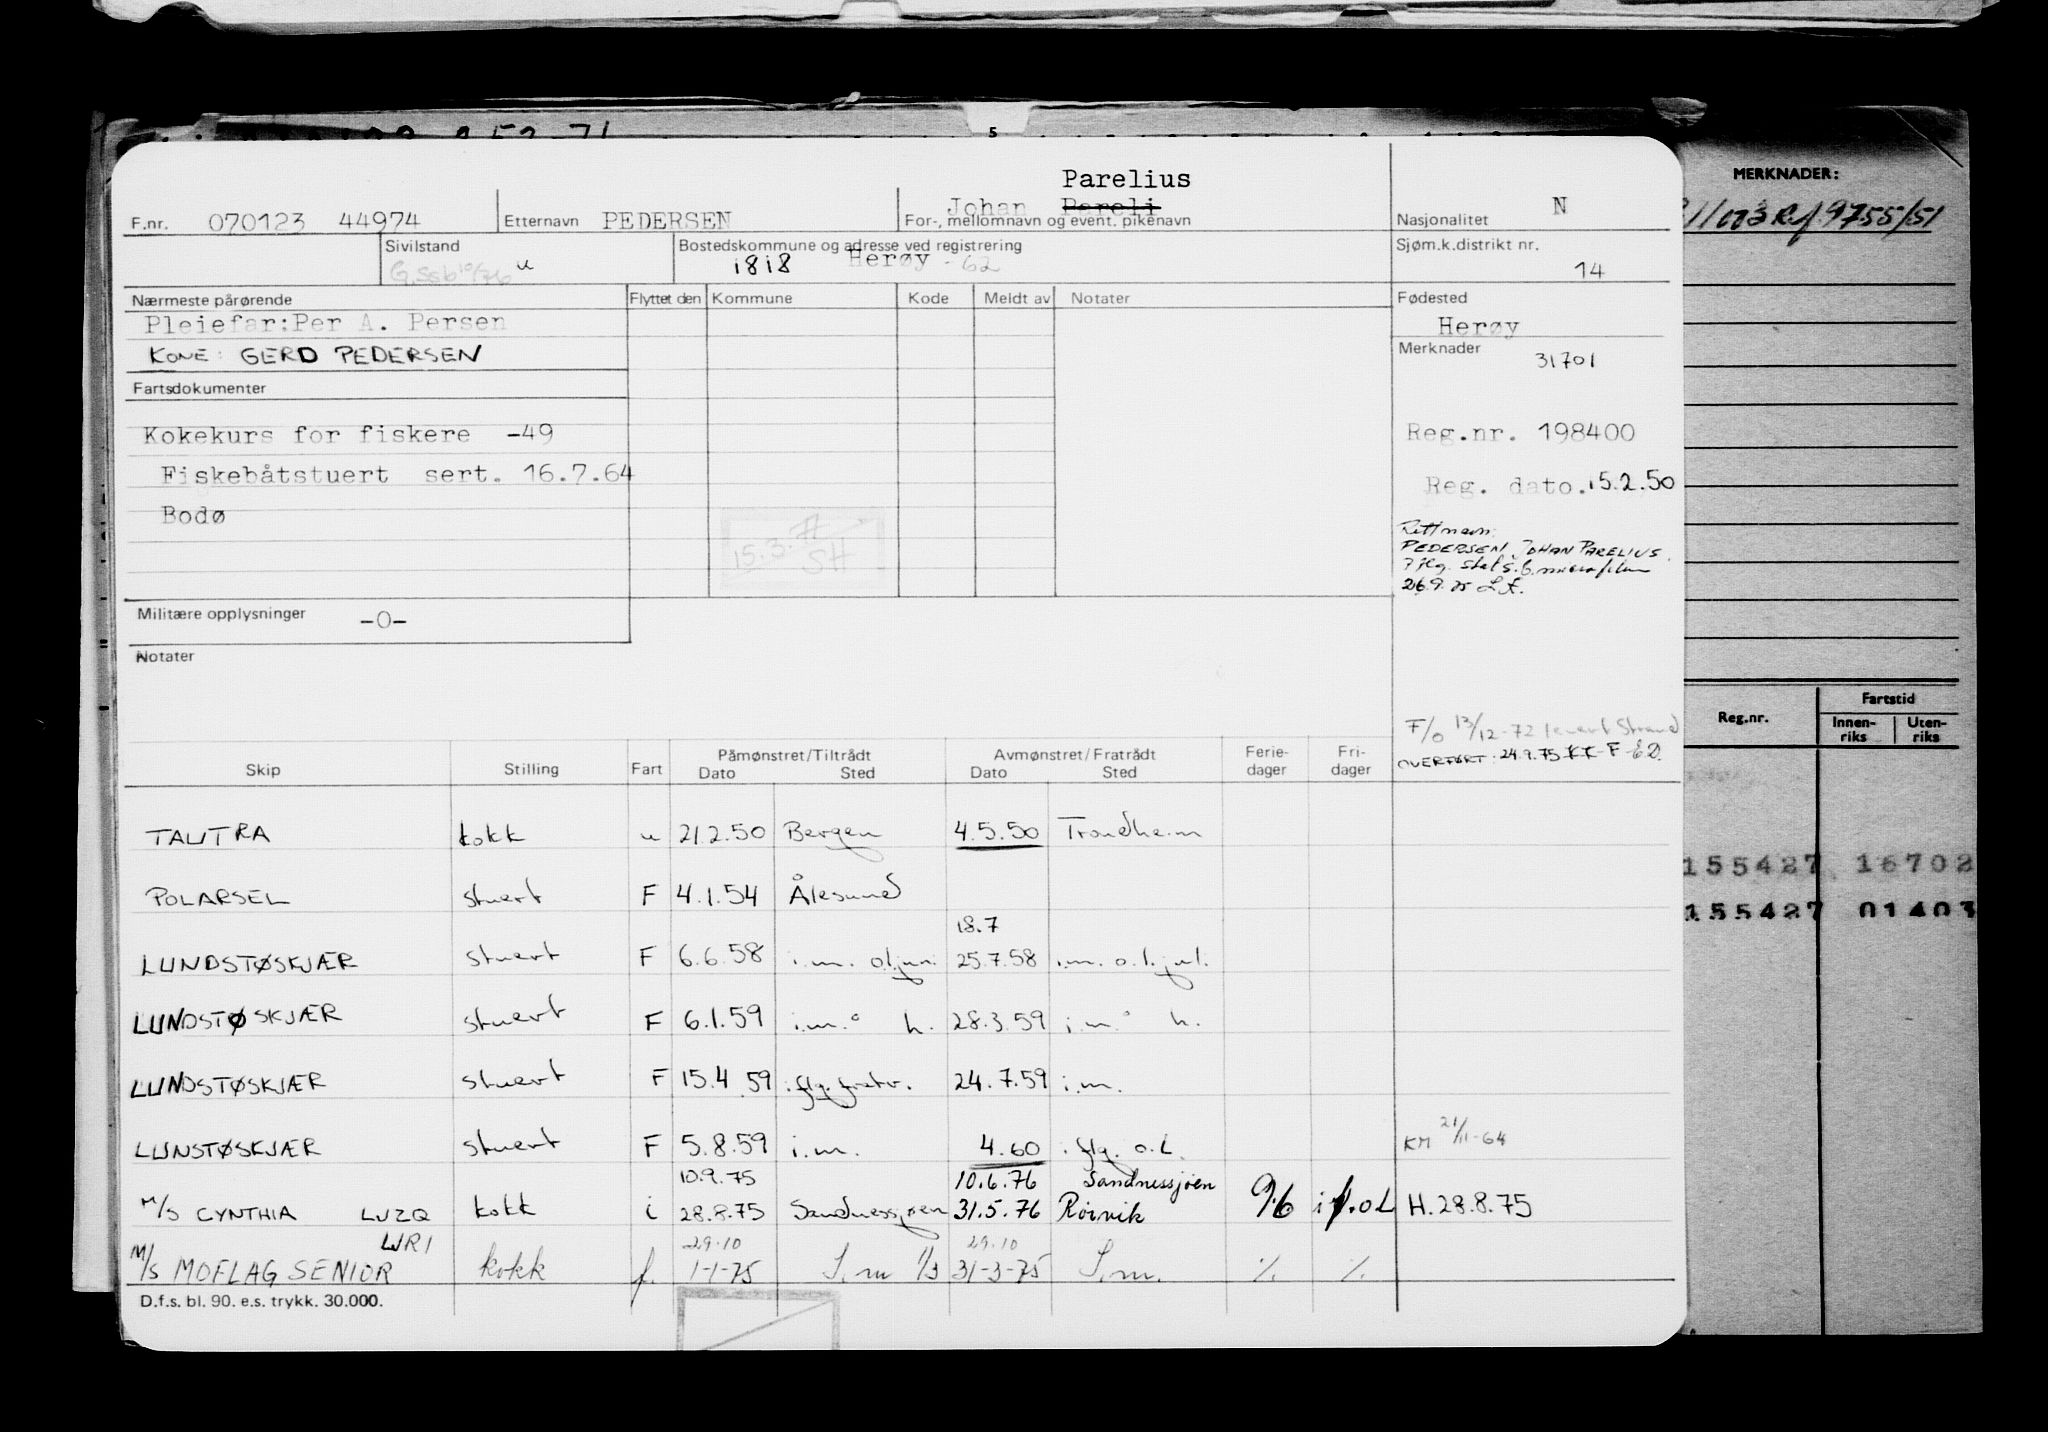 5
MERKNADER:
Parelius
F.nr. 070123 44974 Etternavn PEDERSEN Johan Pareli
For-, mellomnavn og event. pikenavn
Nasjonalitet N
Sivilstand u
Bostedskommune og adresse ved registrering
1818 Herøy -62
Sjøm.k.distrikt nr.
14
Nærmeste pårørende Flyttet den Kommune Kode Meldt av Notater Fødested
Pleiefar:Per A. Persen
Herøy
KONE: GERD PEDERSEN
Merknader 31701
Fartsdokumenter
Kokekurs for fiskere -49
Reg.nr. 198400
Fiskebåtstuert sert. 16.7.64
Reg. dato. 15.2.50
Bodø
15.3.77
SH
Rett navn:
PEDERSEN, JOHAN PARELIUS.
Militære opplysninger -0-
Notater
F/o 13/12-72 levert Strand
OVERFØRT: 24.9.75 KK-F-E.D.
Skip Stilling Fart Påmønstret/Tiltrådt Dato Sted Avmønstret/Fratrådt Dato Sted Ferie-dager Fri-dager
Reg.nr. Fartstid Innen-riks Uten-riks
TAUTRA kokk u 21.2.50 Bergen 4.5.50 Trondheim
155427 16702
POLARSEL stuert F 4.1.54 Ålesund
155427 01403
18.7
LUNDSTØSKJÆR stuert F 6.6.58 i.m. o.l. juni 25.7.58 i.m. o.l. juli
LUNDSTØSKJÆR stuert F 6.1.59 i.m.° h. 28.3.59 i.m.° h.
LUNDSTØSKJÆR stuert F 15.4 59 i flg. fratr. 24.7.59 i.m.
LUNSTØSKJÆR stuert F 5.8.59 i.m. 4.60 i flg. o.l. KM 21/11-64
10.9.75 10.6.76 Sandnessjøen
M/S CYNTHIA LUZQ kokk i 28.8.75 Sandnessjøen 31.5.76 Rörvik 96 H.28.8.75
29.10 29.10
M/S MOFLAG SENIOR kokk f. 1-1-75 S.m 1/3 31-3-75 S.m. % %
D.f.s. bl. 90. e.s. trykk. 30.000.